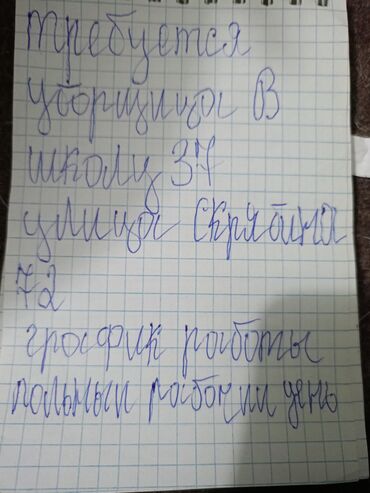 требуется
уборщица в
школу 37
улица Скрябина
72
график работы
полный рабочии день